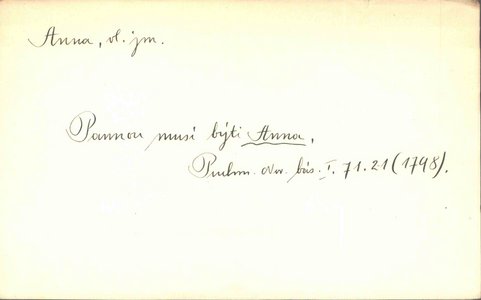 Anna, vl. jm.
Pannou musí býti Anna,
Puchm. Nov. bás. I. 71. 21 (1798).